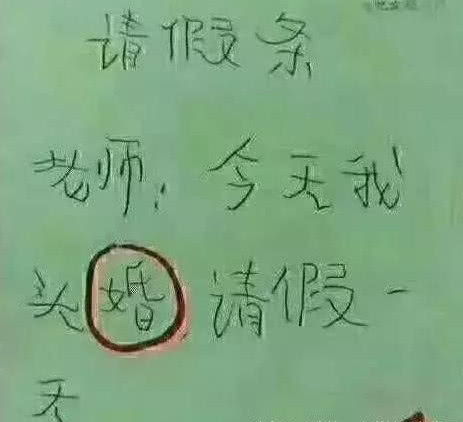 请假条
老师：今天我
头婚请假一
天